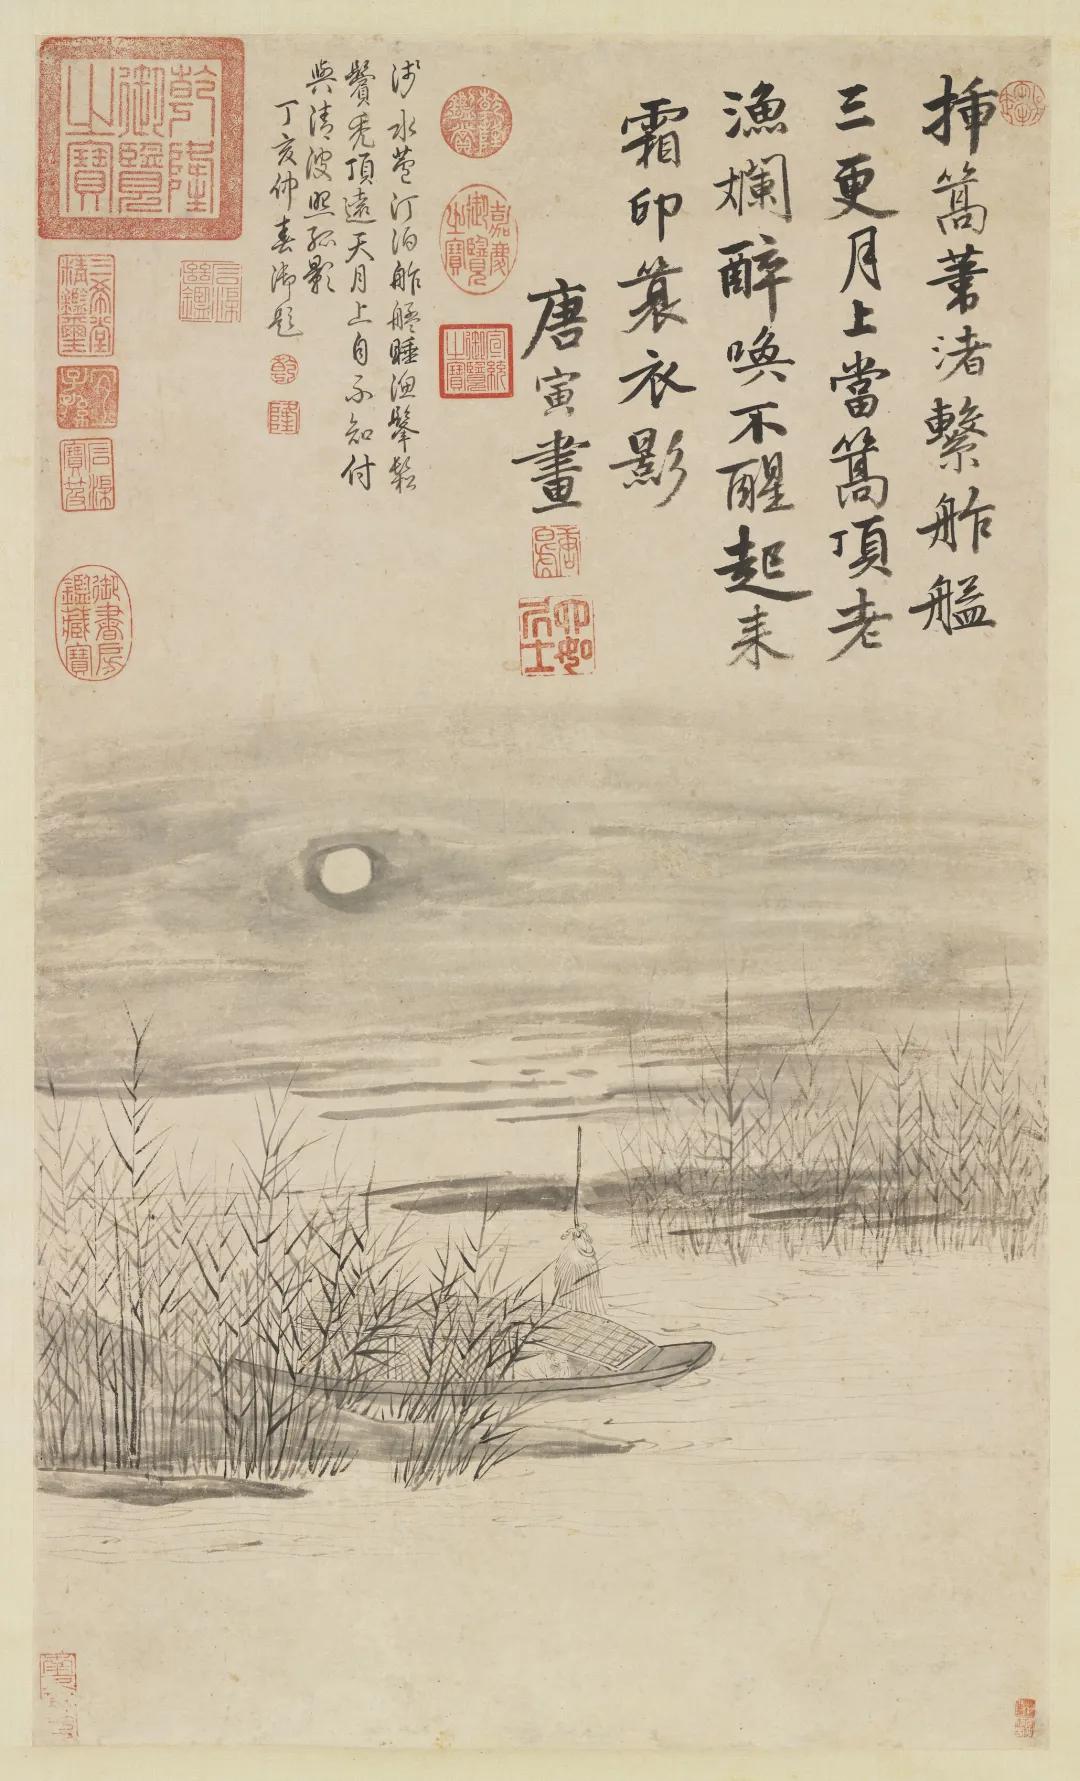 插篙葦渚繫舴艋
三更月上當篙頂老
漁爛醉喚不醒起來
霜印簑衣影
唐寅畫
唐寅
六如居士
乾隆鑑賞
嘉慶御覽之寶
宣統御覽之寶
涉水蒼汀泊舴艋睡漁鬔鬆
鬢禿頂遠天月上自不知付
與清波照孤影
丁亥仲春御題
乾
隆
乾隆御覽之寶
石渠寶笈
三希堂精鑑璽
宜子孫
御書房鑑藏寶